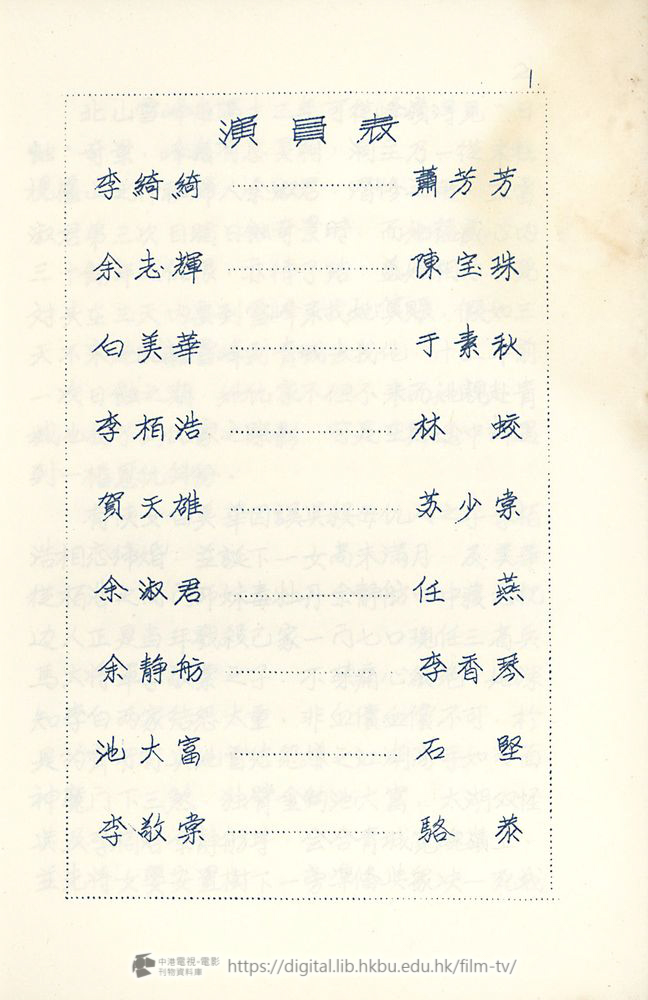 1.
演員表
李綺綺 蕭芳芳
余志輝 陳宝珠
白美華 于素秋
李栢浩 林蛟
賀天雄 苏少棠
余淑君 任燕
余静舫 李香琴
池大富 石堅
李敬棠 駱恭
中港電視·電影
刊物資料庫
https://digital.lib.hkbu.edu.hk/film-tv/